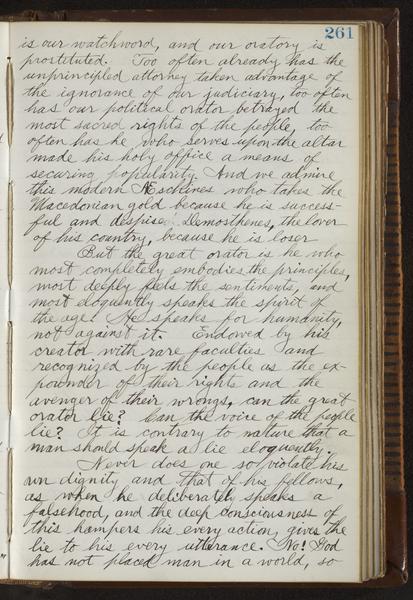 261
is our watchword, and our oratory is
prostituted. Too often already has the
unprincipled attorney taken advantage of
the ignorance of our judiciary, too often
has our political orator betrayed the
most sacred rights of the people, too
often has he who serves upon the altar
made his holy office a means of
securing popularity. And we admire
this modern Æschines who takes the
Macedonian gold because he is success-
ful and despise Demosthenes, the lover
of his country, because he is loser
But the great orator is he who
most completely embodies the principles,
most deeply feels the sentiments, and
most eloquently speaks the spirit of
the age. He speaks for humanity,
not against it. Endowed by his
creator with rare faculties and
recognized by the people as the ex-
pounder of their rights and the
avenger of their wrongs, can the great
orator lie? Can the voice of the people
lie? It is contrary to nature that a
man should speak a lie eloquently.
Never does one so violate his
own dignity and that of his fellows,
as when he deliberately speaks a
falsehood, and the deep consciousness of
this hampers his every action, gives the
lie to his every utterance. No! God
has not placed man in a world, so